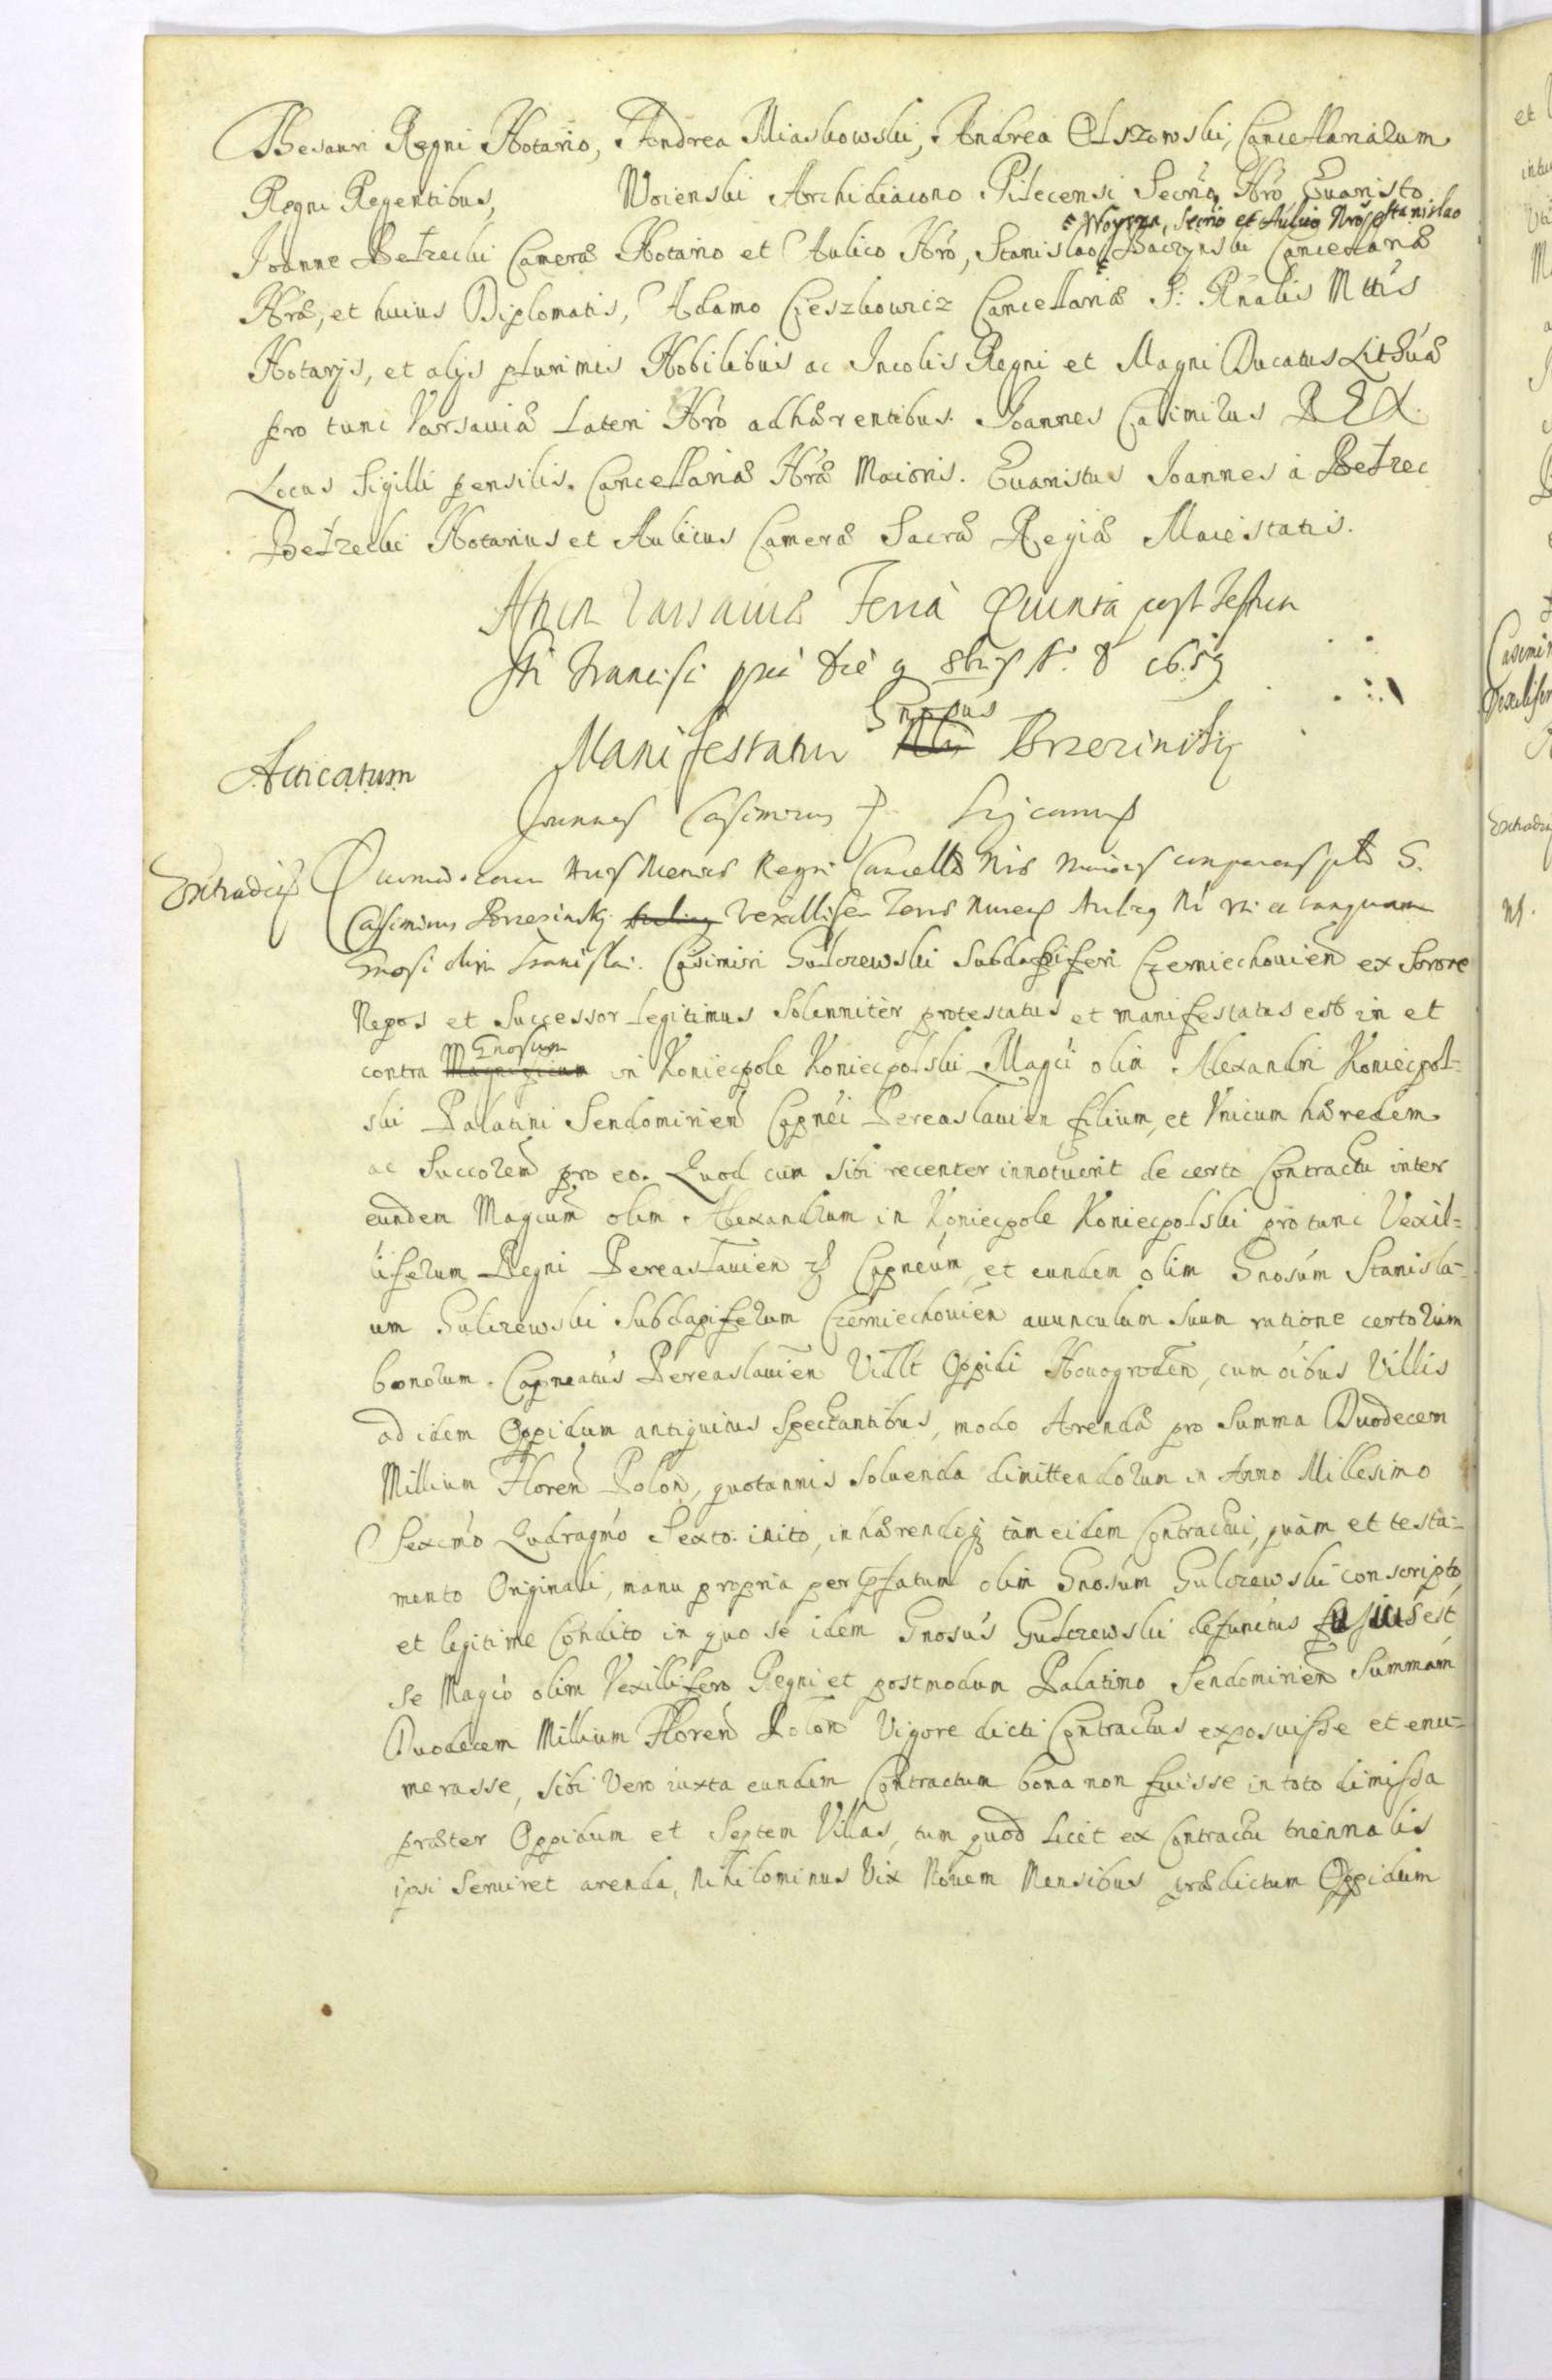 Thesauri Regni Notario, Andrea Miaskowski, Andrea Olszowski, Cancellariarum
Regni Regentibus, Woienski Archidiacono Pilecensi Secrio Nrō, Evaristo
e Woyna, Secrio et Aulico Nrō, Stanislao
Joanne Bełzecki Cameræ Notario et Aulico Nrō, Stanislao Baczynski Cancellariæ
Nræ, et huius Diplomatis, Adamo Cieszkowicz Cancellariæ S: Rñalis Mttis
Notarijs, et alijs plurimis Nobilibus ac Incolis Regni et Magni Ducatus Lithuæ
pro tunc Varsaviæ Lateri Nrō adhærentibus. Joannes Casimirus REX.
Locus Sigilli pensilis. Cancellariæ Nræ Maioris. Evaristus Joannes à Bełzec
Bełzecki Notarius et Aulicus Cameræ Sacræ Regiæ Maiestatis.
Varsaviæ Feria Quinta post Festum
Sti Francisci die 9 8bris A. D 1659
Gnosus
Manifestatur Brzezinski
Acticatum
Joannes Casimirus
Extradit
Regni Cancellæ comparens G.
Casimirus Brzezinski Vexillifer uti et tanquam
Gnosi olim Stanislai Casimiri Gulczewski Subdapiferi Czerniechovien ex Sorore
Nepos et Successor legitimus Solenniter protestatus et manifestatus est in et
Gnosum
contra Magnificum in Koniecpole Koniecpolski Magci olim Alexandri Koniecpol=
ski Palatini Sendomirien Capnei Pereaslavien filium, et Unicum hæredem
ac Succorem pro eo. Quod cum sibi recenter innotuerit de certo Contractu inter
eundem Magcum olim Alexandrum in Koniecpole Koniecpolski pro tunc Vexil=
liferum Regni Pereaslavien Capneum, et eundem olim Gnosum Stanisla=
um Gulczewski Subdapiferum Czerniechovien avunculum suum ratione certorum
bonorum Capneatus Pereaslavien Vidlt Oppidi Novogroden, cum oibus Villis
ad idem Oppidum antiquitus Spectantibus, modo Arendæ pro Summa Duodecem
Millium Floren Polon, quotannis solvenda dimittendorum in Anno Millesimo
Sexcmo Qudragmo Sexto inito, inhærendoq tàm eidem Contractui, quàm et testa=
mento Originali, manu propria per præfatum olim Gnosum Gulczewski conscripto,
et legitime Condito in quo se idem Gnosus Gulczewski defunctus fassus est
se Magco olim Vexillifero Regni et postmodum Palatino Sendomirien Summam
Duodecem Millium Floren Polon Vigore dicti Contractus exposuisse et enu=
merasse, sibi vero iuxta eundem Contractum bona non fuisse in toto dimissa
præter Oppidum et Septem Villas, tum quod licet ex Contractu triennalis
ipsi serviret arenda, Nihilominus Vix Novem Mensibus prædictum Oppidum